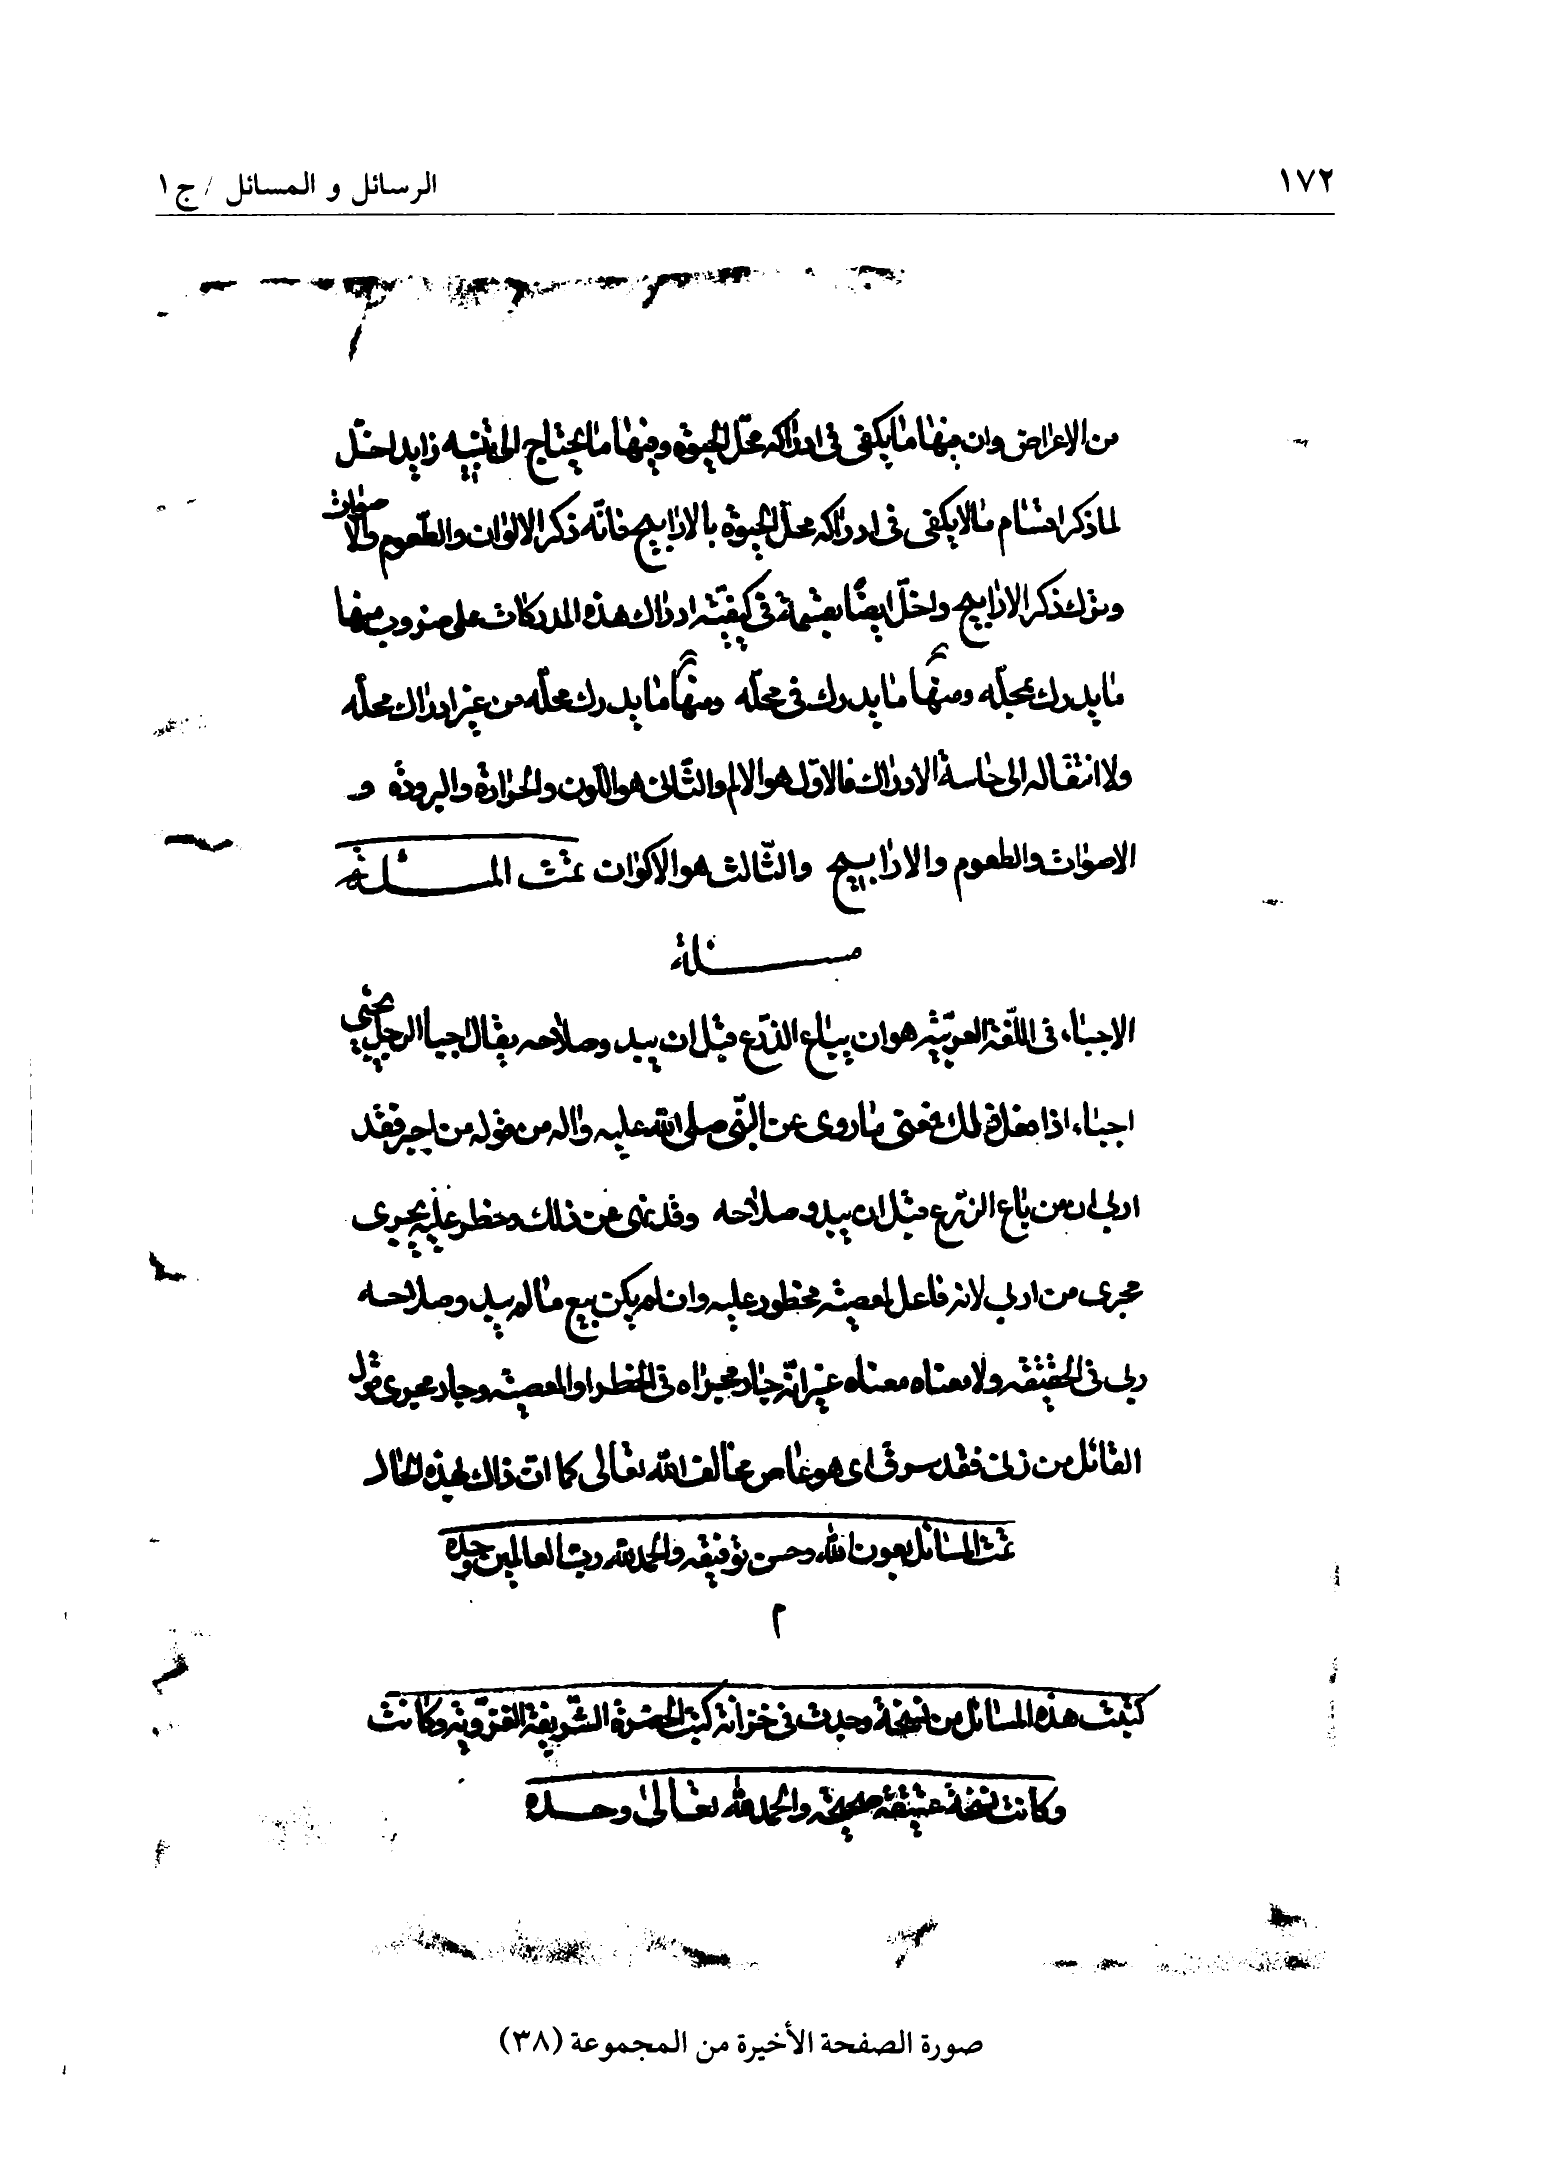 ١٧٢
الرسائل و المسائل / ج ١
من الاعراض وان منها ما يكفى فى ادراكه محلّ الحيوة ومنها ما يحتاج الى بنيه زايد اخلّ
لما ذكر اقسام ما لا يكفى فى ادراكه محلّ الحيوة بالارابيح فانّه ذكر الالوان والطّعوم والاصوات
وترك ذكر الارابيح واخلّ ايضًا بقسمة فى كيفيّة ادراك هذه المدركات على ضروب منها
ما يدرك بمحلّه ومنها ما يدرك فى محلّه ومنها ما يدرك محلّه من غير ادراك محلّه
ولا انتقاله الى حاسة الادراك فالاوّل هو الالم والثّانى هو اللّون والحرارة والبرودة و
الاصوات والطعوم والارابيح والثّالث هو الاكوان تمّت المسئلة
مسئلة
الاجباء فى اللّغة العربيّة هو ان يباع الزرع قبل ان يبدو صلاحه يقال اجبا الرجل يجبى
اجباء اذا فعل ذلك فمعنى ما روى عن النّبى صلى الله عليه واله من قوله من اجبى فقد
اربى ان من باع الزّرع قبل ان يبدو صلاحه وقد نهى عن ذلك وحظر عليه يجرى
مجرى من اربى لانه فاعل لمعصية محظور عليه وان لم يكن بيع ما لم يبد وصلاحه
ربى فى الحقيقة ولا معناه معناه غير انّه جار مجراه فى الحظر والمعصية وجار مجرى قول
القائل من زنى فقد سرق اى هو عاص مخالف الله تعالى كما انّ ذاك لهذه الحال
تمّت المسائل بعون الله وحسن توفيقه والحمد لله ربّ العالمين وحده
م
كتبت هذه المسائل من نسخة وجدت فى خزانة كتب الحضرة الشّريفة الغرّوية وكانت
وكانت نسخة عتيقة صحيحة والحمد لله تعالى وحده
صورة الصفحة الأخيرة من المجموعة (٣٨)